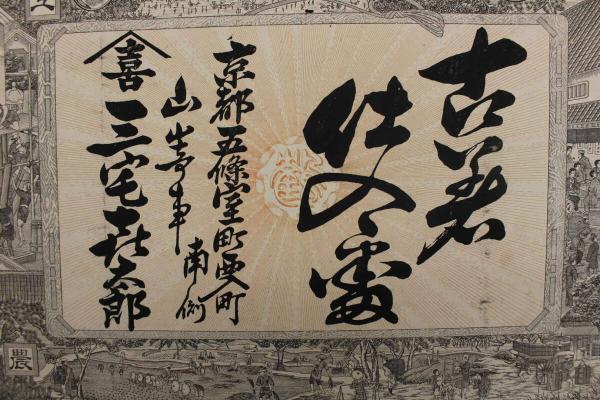 古着
仕入處
京都五條室町西町
山崎事
南側
喜 三宅喜太郎
農